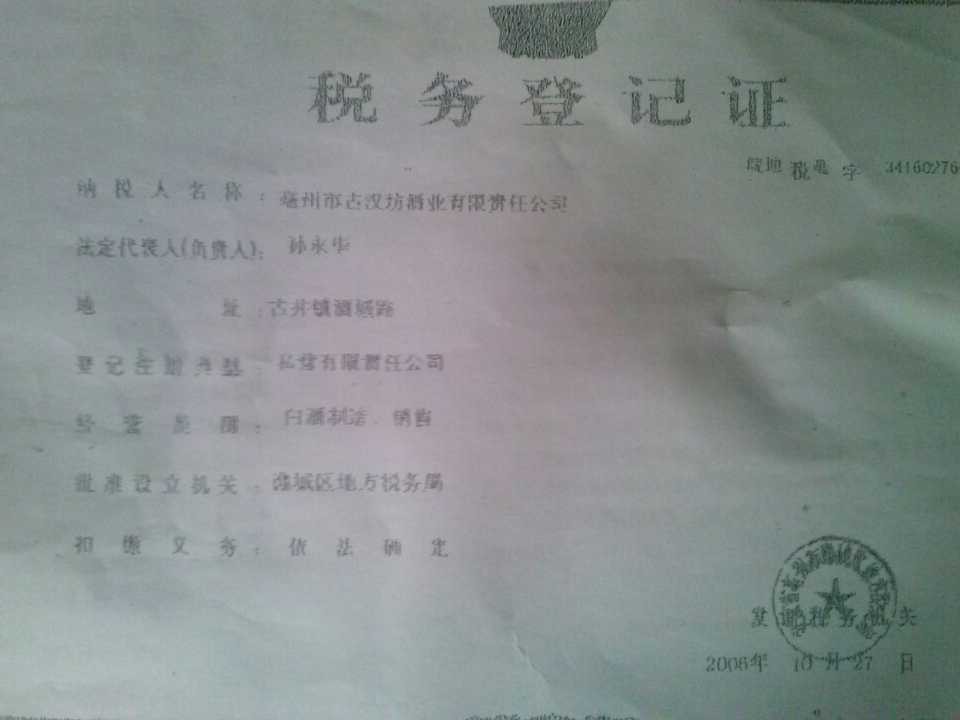 税务登记证
皖地税亳字 34160276
纳税人名称：亳州市古汉坊酒业有限责任公司
法定代表人(负责人)：孙永华
地址：古井镇酒城路
登记注册类型：私营有限责任公司
经营范围：白酒制造、销售
批准设立机关：谯城区地方税务局
扣缴义务：依法确定
发证税务机关
2006年10月27日